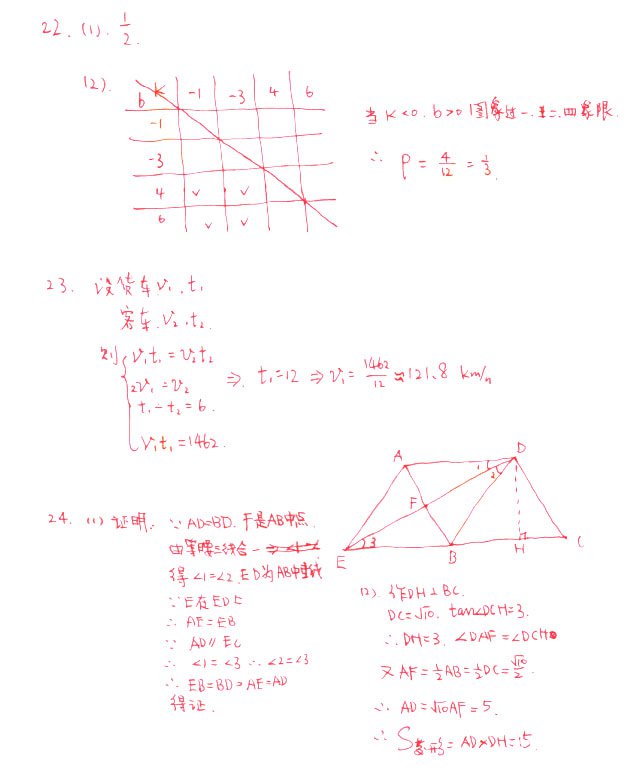 22. (1). 1/2.
(2).
b K -1 -3 4 6
-1
-3
4 ✓ ✓
6 ✓ ✓
当 K<0. b>0 图象过一.二.四象限.
∴ P = 4/12 = 1/3.
23. 设货车 v₁. t₁
客车 v₂. t₂
则 { v₁t₁ = v₂t₂
2v₁ = v₂
t₁ - t₂ = 6.
v₁t₁ = 1462.
⇒ t₁=12 ⇒ v₁ = 1462/12 ≈ 121.8 km/h
A D 1 2 F 3 E B H C
24. (1) 证明. ∵ AD=BD. F是AB中点.
由等腰三线合一
得 ∠1=∠2. ED为AB中垂线
∵ E在ED上
∴ AE=EB
∵ AD∥EC
∴ ∠1=∠3 ∴ ∠2=∠3
∴ EB=BD=AE=AD
得证.
(2). 作DH⊥BC.
DC=√10. tan∠DCH=3.
∴ DH=3. ∠DAF=∠DCH
又 AF=1/2AB=1/2DC=√10/2.
∴ AD=√10AF=5.
∴ S菱形=AD×DH=15.